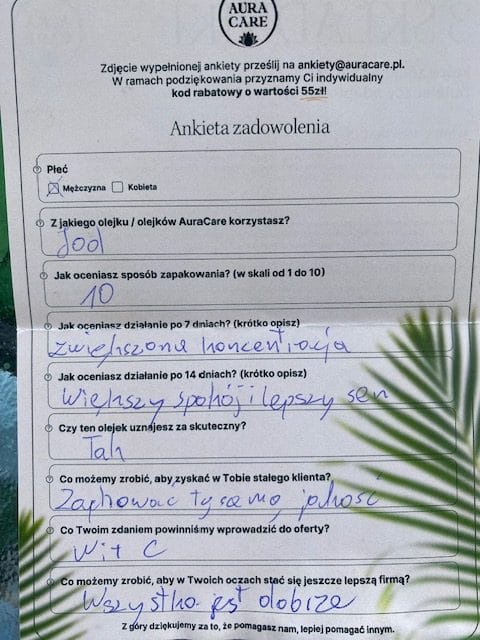 AURA
CARE
Zdjęcie wypełnionej ankiety prześlij na ankiety@auracare.pl.
W ramach podziękowania przyznamy Ci indywidualny
kod rabatowy o wartości 55zł!
Ankieta zadowolenia
Płeć
Mężczyzna Kobieta
Z jakiego olejku / olejków AuraCare korzystasz?
Jod
Jak oceniasz sposób zapakowania? (w skali od 1 do 10)
10
Jak oceniasz działanie po 7 dniach? (krótko opisz)
zwiększona koncentracja
Jak oceniasz działanie po 14 dniach? (krótko opisz)
większy spokój i lepszy sen
Czy ten olejek uznajesz za skuteczny?
Tak
Co możemy zrobić, aby zyskać w Tobie stałego klienta?
Zachować tą samą jakość
Co Twoim zdaniem powinniśmy wprowadzić do oferty?
Wit C
Co możemy zrobić, aby w Twoich oczach stać się jeszcze lepszą firmą?
Wszystko jest dobrze
Z góry dziękujemy za to, że pomagasz nam, lepiej pomagać innym.